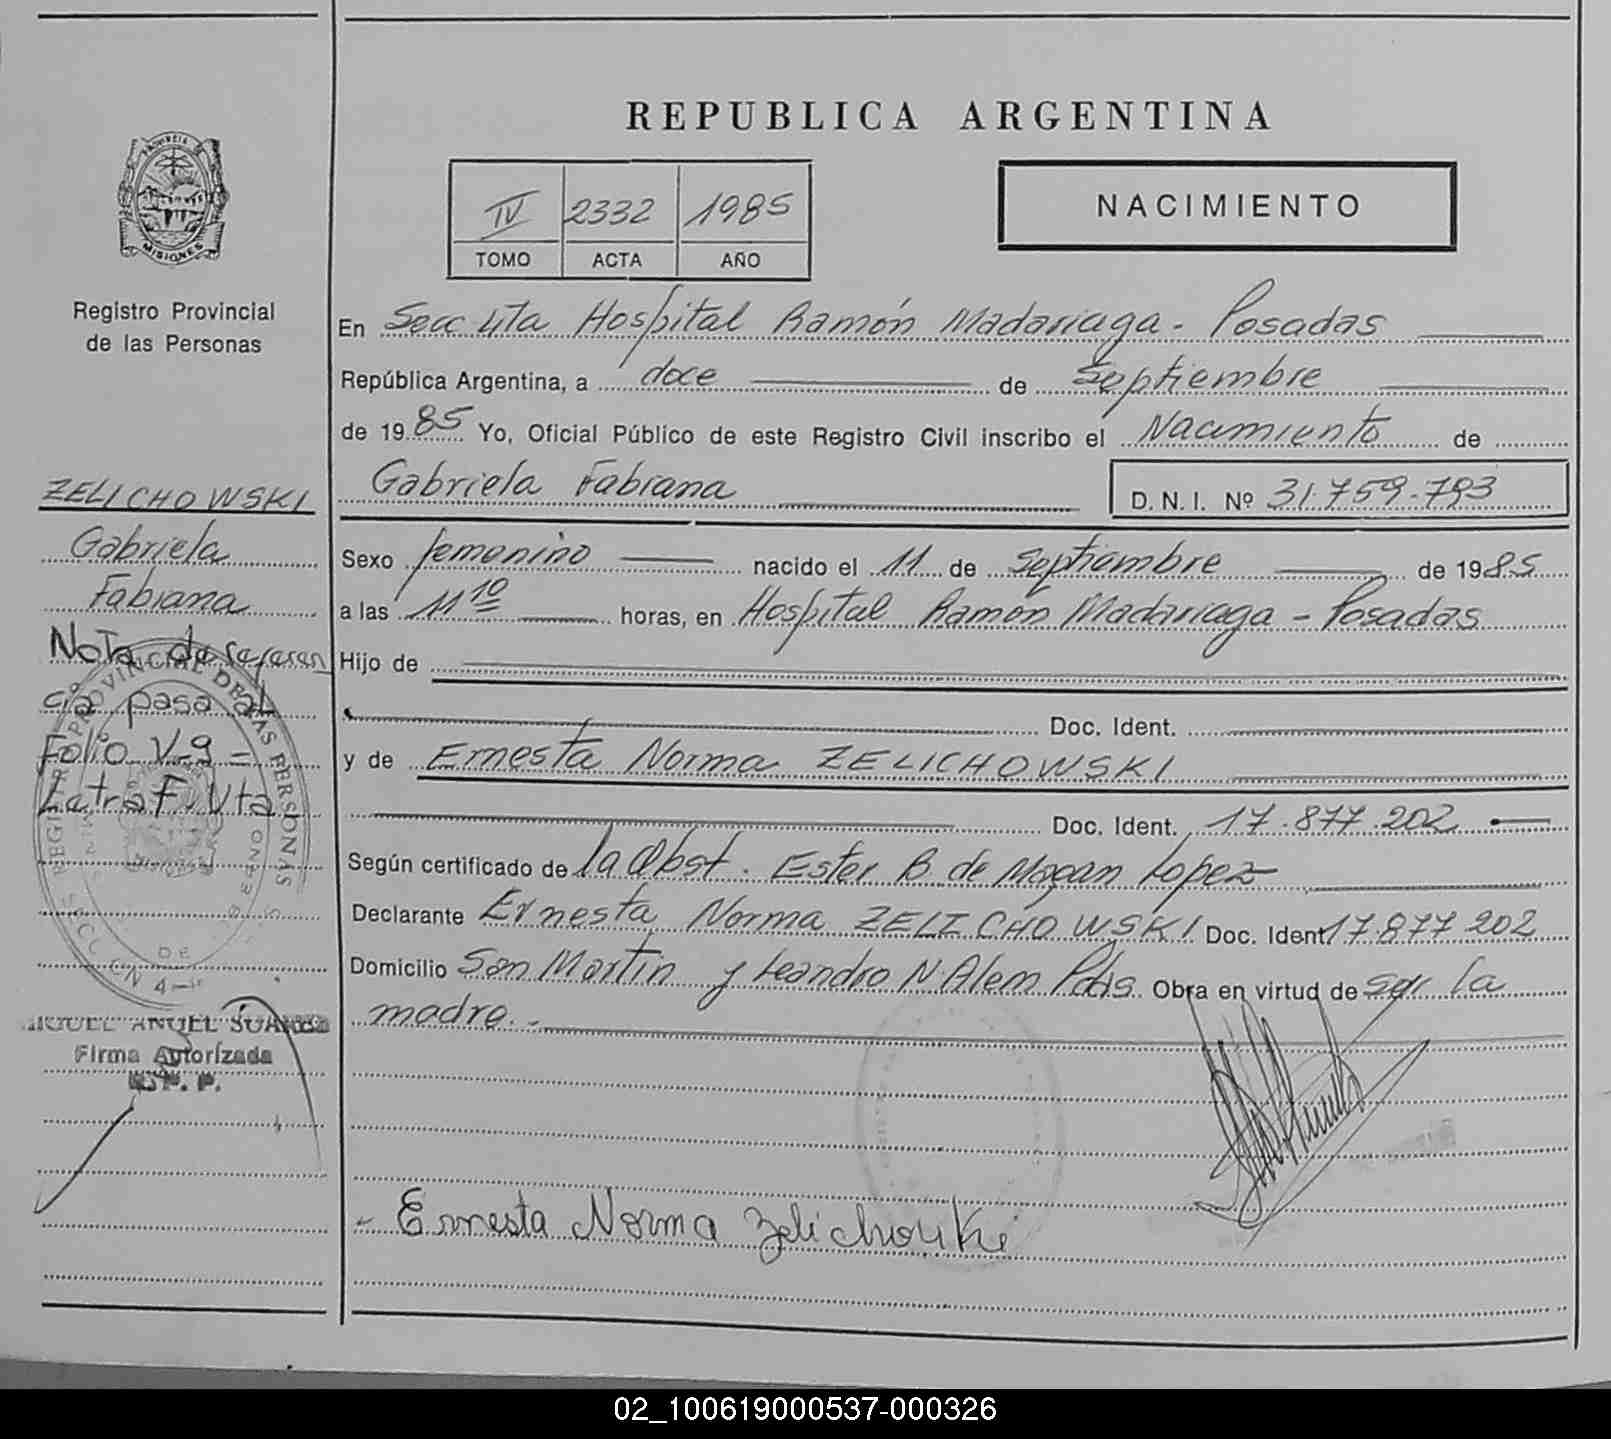 REPUBLICA ARGENTINA
PROVINCIA DE
MISIONES
Registro Provincial
de las Personas
IV 2332 1985
TOMO ACTA AÑO
NACIMIENTO
En Secc 4ta Hospital Ramón Madariaga - Posadas
República Argentina, a doce de Septiembre
de 1985 Yo, Oficial Público de este Registro Civil inscribo el Nacimiento de
Gabriela Fabiana D. N. I. Nº 31.759.793
Sexo femenino nacido el 11 de Septiembre de 1985
a las 11 10 horas, en Hospital Ramón Madariaga - Posadas
Hijo de
Doc. Ident.
y de Ernesta Norma ZELICHOWSKI
Doc. Ident. 17.877.202
Según certificado de la Obst. Ester B de Lopez
Declarante Ernesta Norma ZELICHOWSKI Doc. Ident 17.877 202
Domicilio San Martin y Leandro N. Alem Pdas Obra en virtud de ser la
madre.-
- Ernesta Norma Zelichouki
ZELICHOWSKI
Gabriela
Fabiana
Nota de referen
cia pasa al
Folio V-9 =
Letra F. Vta
REGISTRO PROVINCIAL DE LAS PERSONAS
MIGUEL ANGEL SUAREZ
Firma Autorizada
R. P. P.
02_100619000537-000326